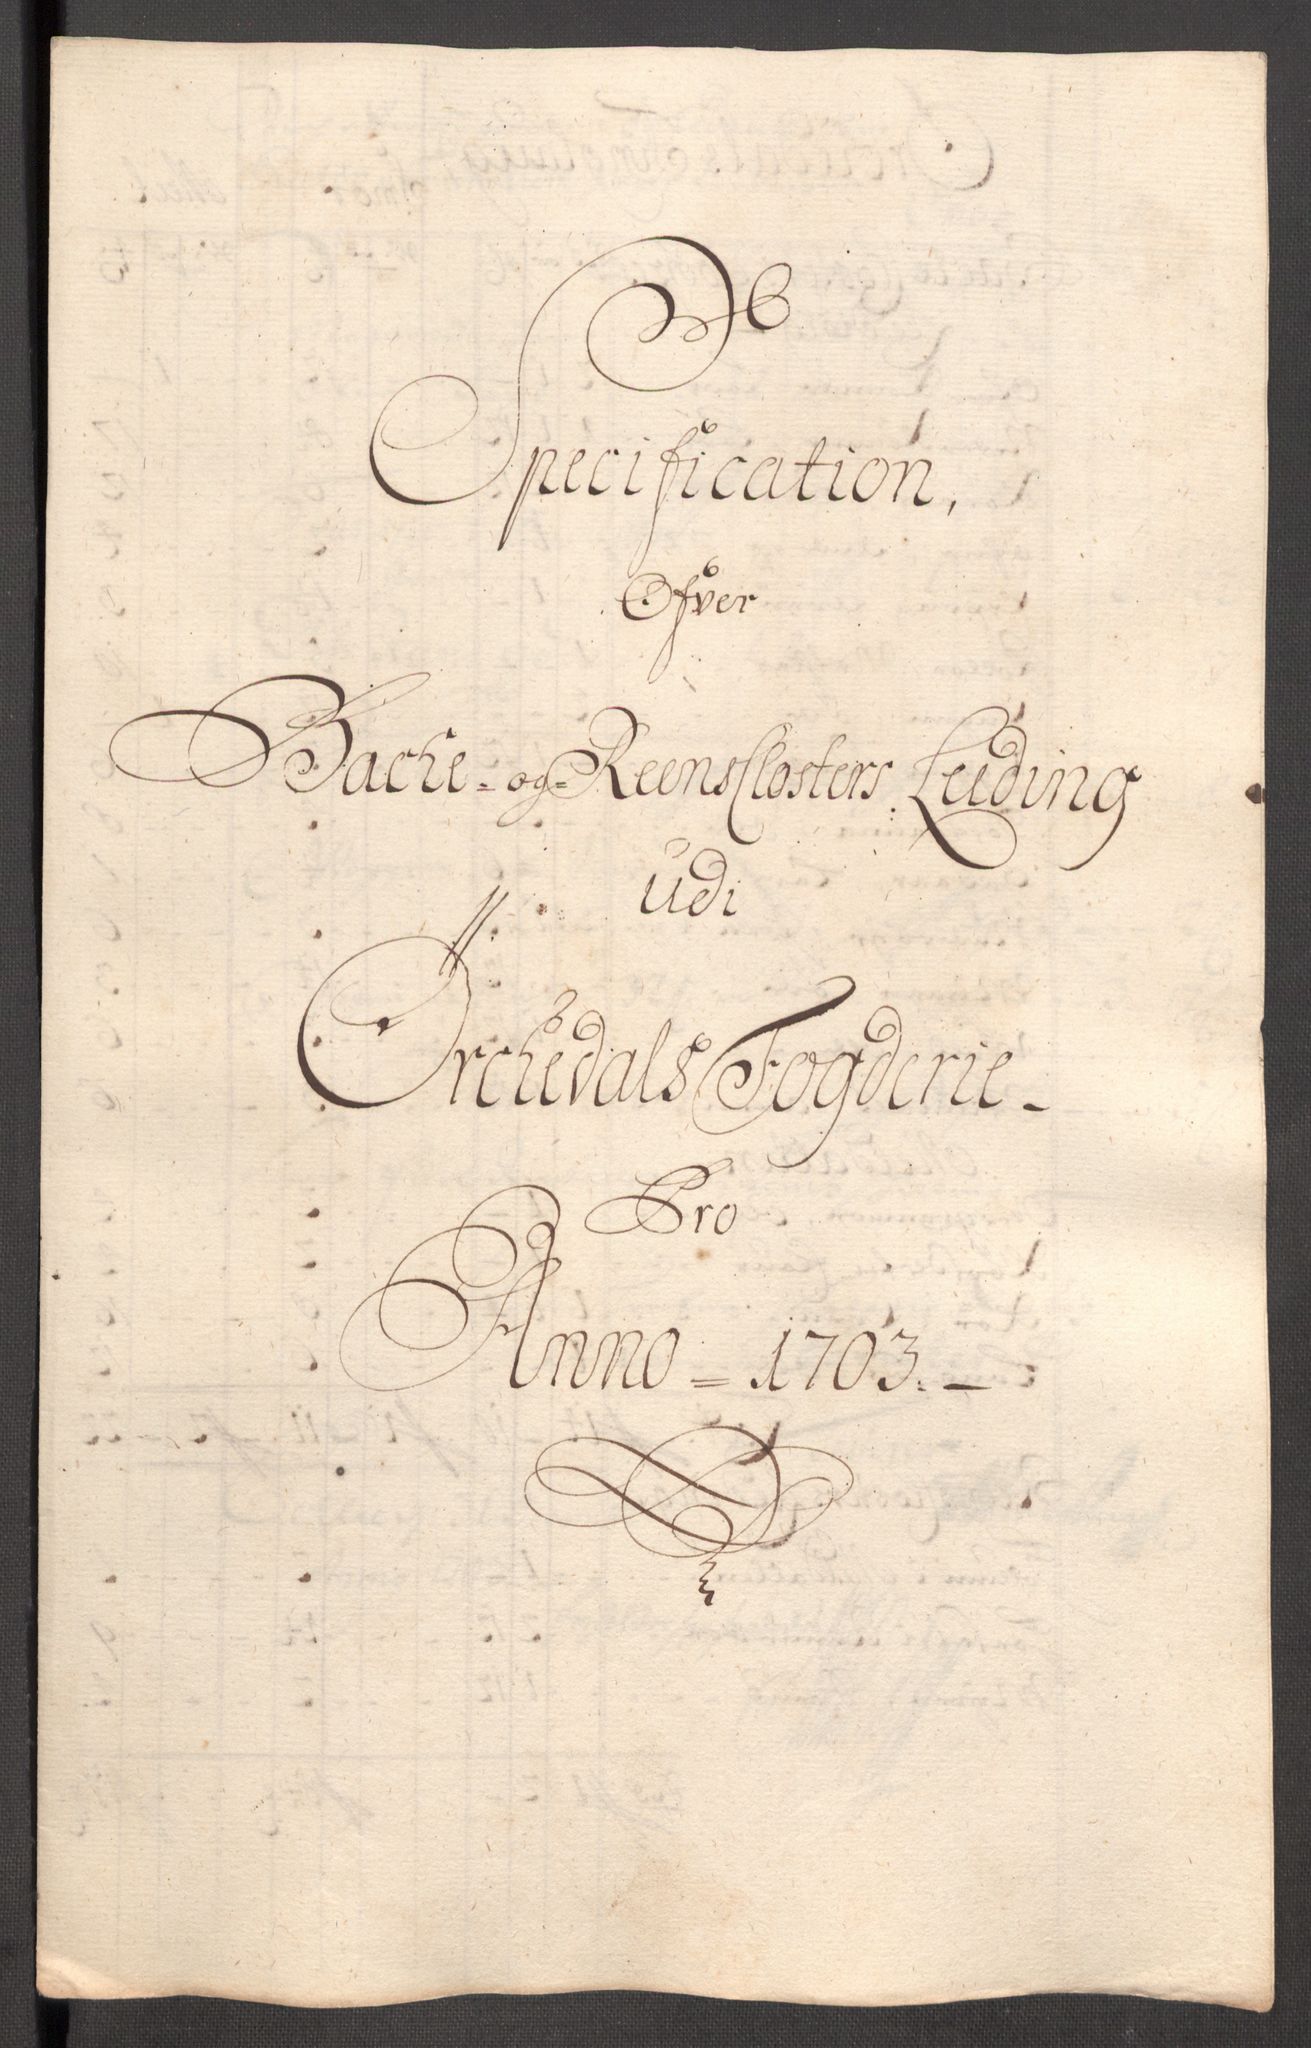 Specification,
Ofver
Bache- og- Reens Closters Leding
udi
Orchedals Fogderie-
Pro
Anno = 1703. -